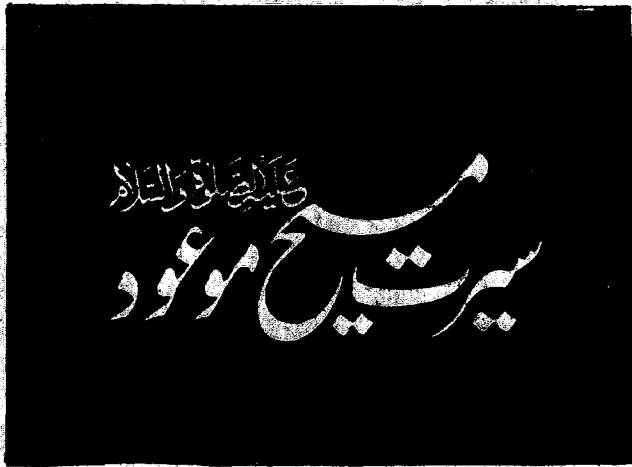 سیرت مسیح موعود
علیہ الصلوٰۃ والسلام